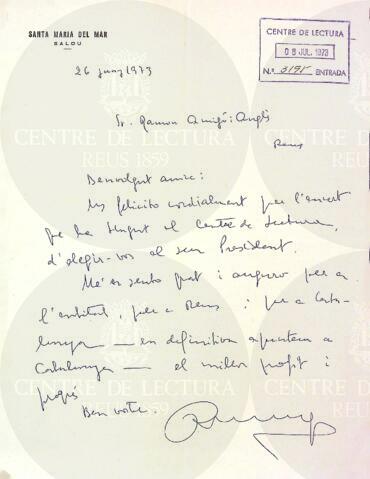 SANTA MARIA DEL MAR
SALOU
CENTRE DE LECTURA
06 JUL. 1973
N.º 3195 ENTRADA
26 juny 1973
Sr. Ramon Amigó i Anglès
Reus
Benvolgut amic:
Us felicito cordialment per l'encert
que ha tingut el Centre de Lectura,
d'elegir-vos el seu President.
Me'n sento grat i auguro per a
l'entitat, per a Reus i per a Cata-
lunya — en definitiva a
Catalunya — el millor profit i
progrés.
Ben vostre.
CENTRE DE LECTURA
REUS 1859